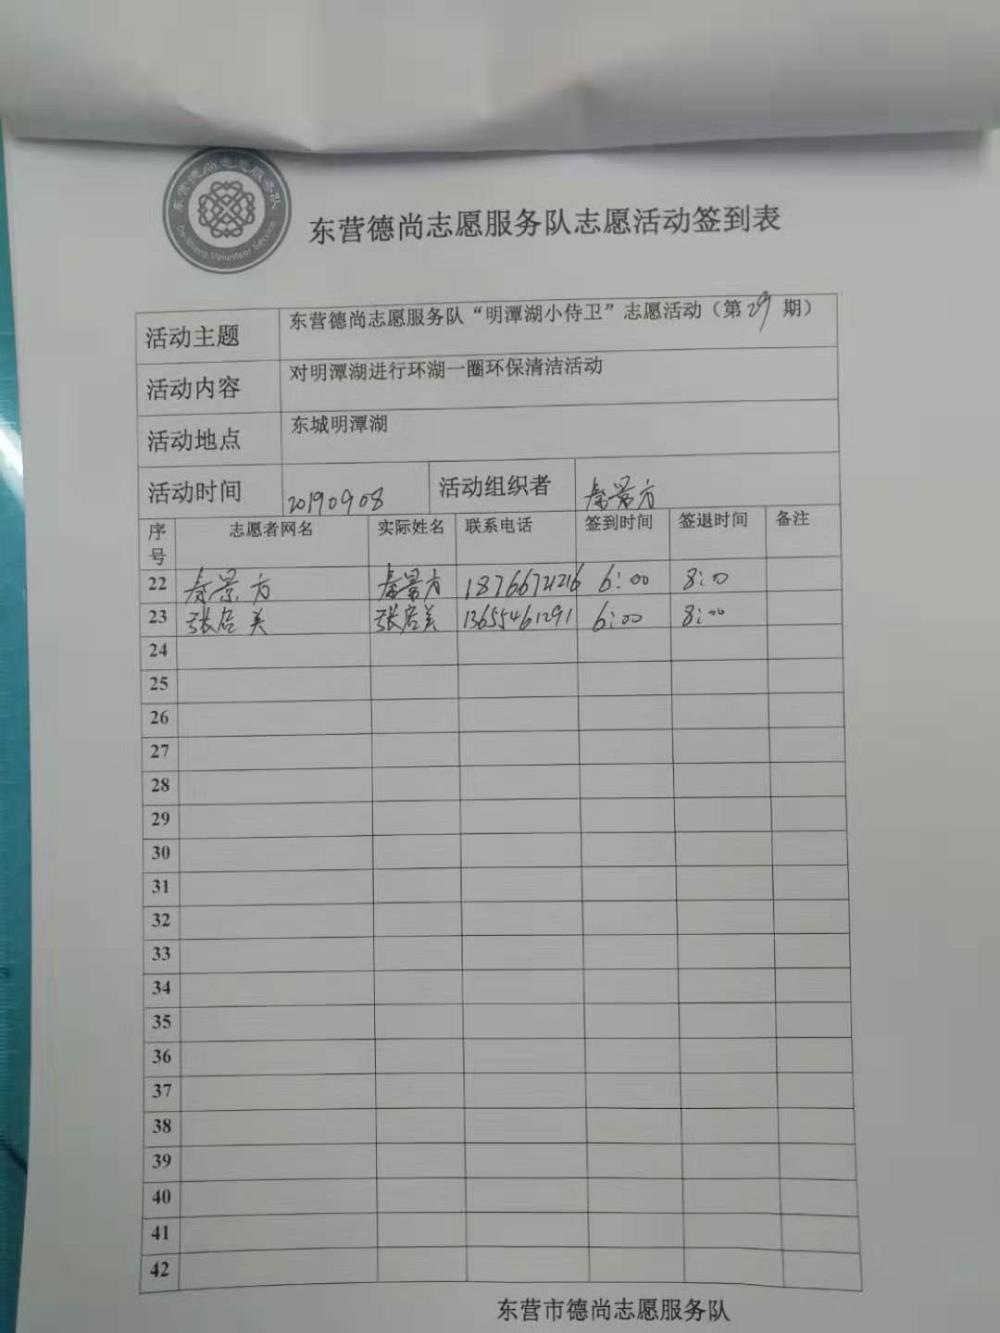 东营德尚志愿服务队
De Shang Volunteer Service
东营德尚志愿服务队志愿活动签到表
活动主题 东营德尚志愿服务队“明潭湖小侍卫”志愿活动（第29期）
活动内容 对明潭湖进行环湖一圈环保清洁活动
活动地点 东城明潭湖
活动时间 20190908 活动组织者 秦景方
序号 志愿者网名 实际姓名 联系电话 签到时间 签退时间 备注
22 秦景方 秦景方 18766721216 6:00 8:00
23 张启美 张启美 13655461291 6:00 8:00
24
25
26
27
28
29
30
31
32
33
34
35
36
37
38
39
40
41
42
东营市德尚志愿服务队